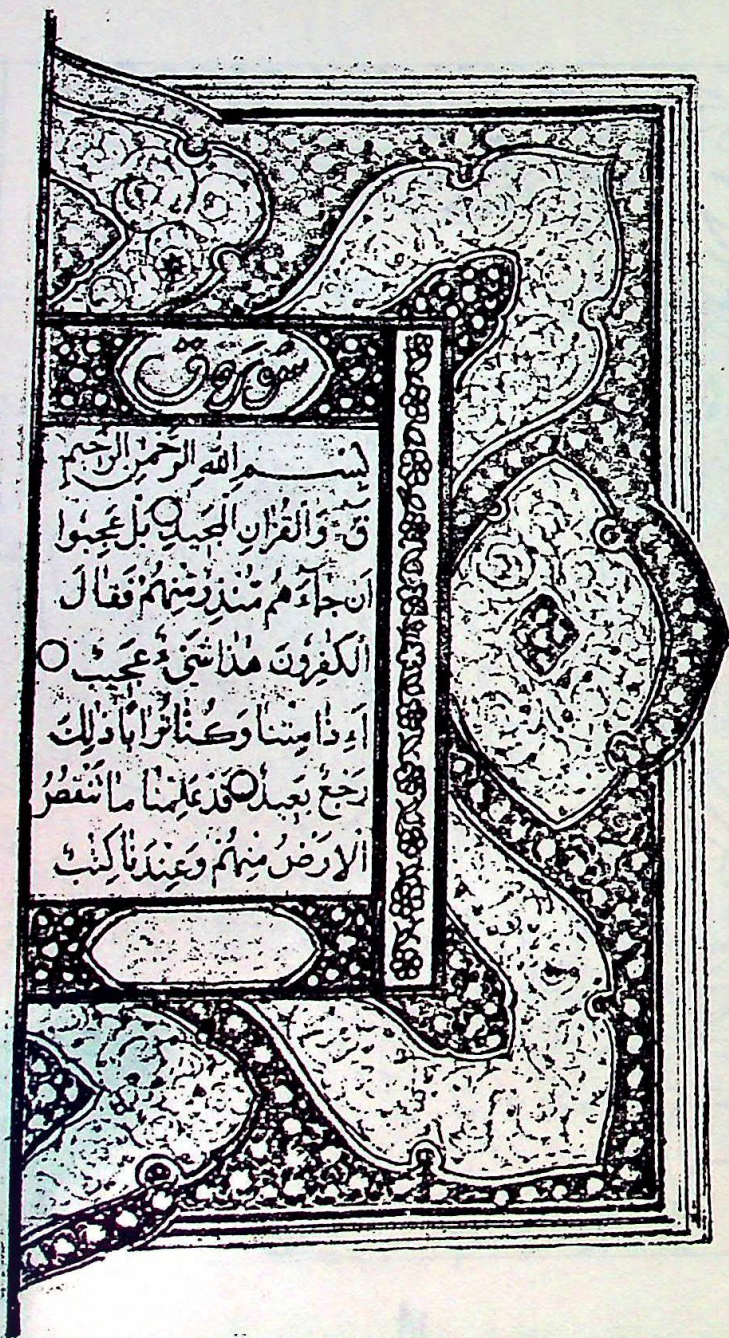 سورة ق
بسم الله الرحمن الرحيم
قٓ وَالْقُرْاٰنِ الْمَجِيدِ ○ بَلْ عَجِبُوا
اَنْ جَاۤءَهُمْ مُنْذِرٌ مِنْهُمْ فَقَالَ
الْكٰفِرُونَ هٰذَا شَيْءٌ عَجِيبٌ ○
ءَاِذَا مِتْنَا وَكُنَّا تُرَابًا ذٰلِكَ
رَجْعٌ بَعِيدٌ ○ قَدْ عَلِمْنَا مَا تَنْقُصُ
الْاَرْضُ مِنْهُمْ وَعِنْدَنَا كِتٰبٌ